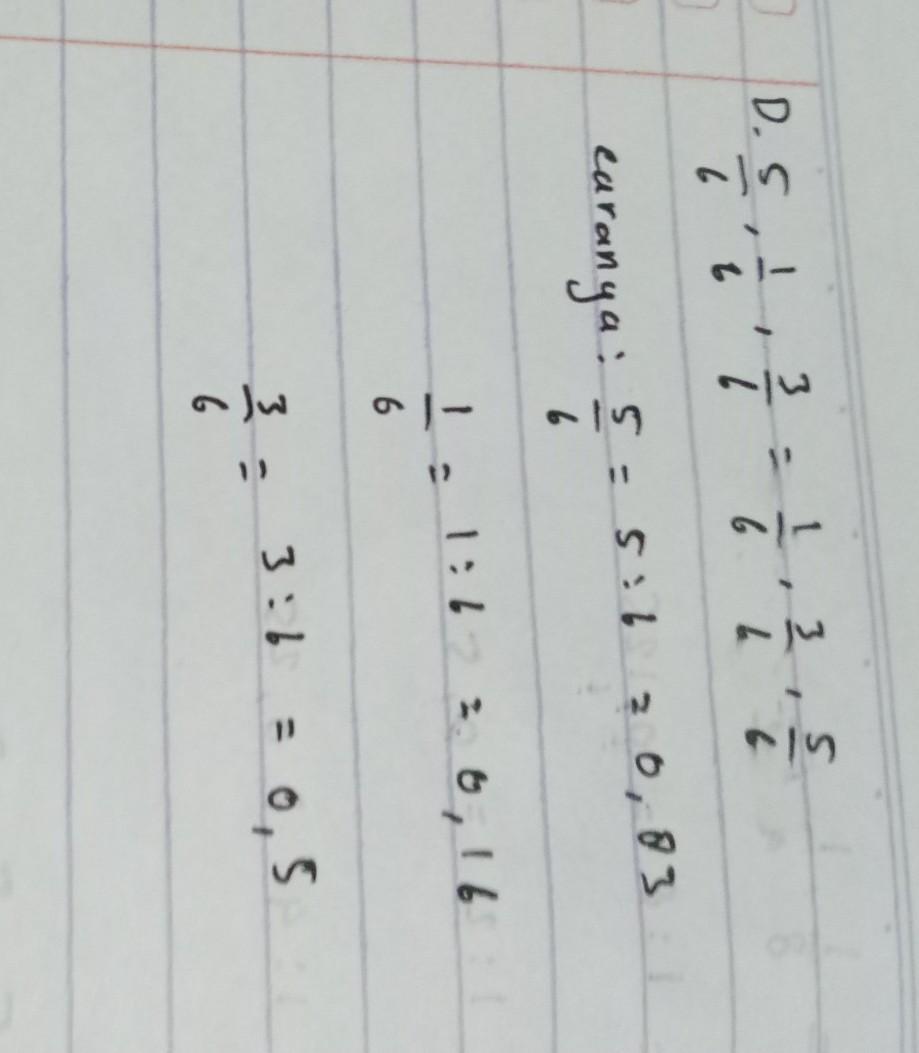 D. 5/6, 1/6, 3/6 = 1/6, 3/6, 5/6
caranya: 5/6 = 5:6 = 0,83
1/6 = 1:6 = 0,16
3/6 = 3:6 = 0,5